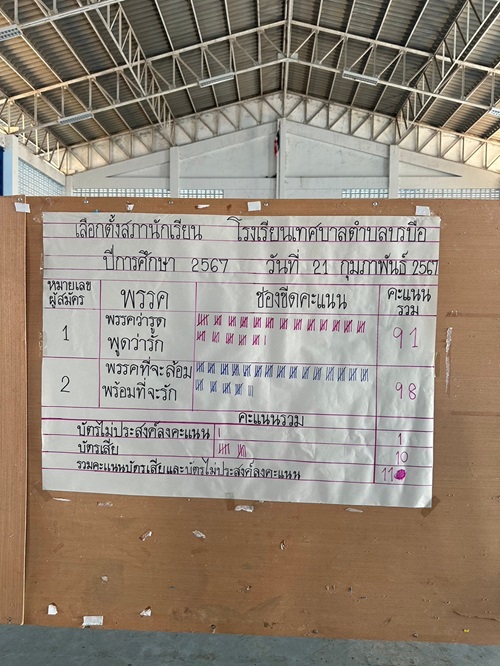 เลือกตั้งสภานักเรียน โรงเรียนเทศบาลตำบลบรบือ
ปีการศึกษา 2567 วันที่ 21 กุมภาพันธ์ 2567
หมายเลขผู้สมัคร พรรค ช่องขีดคะแนน คะแนนรวม
1 พรรคว่ารูด พูดว่ารัก 91
2 พรรคที่จะล้อม พร้อมที่จะรัก 98
คะแนนรวม
บัตรไม่ประสงค์ลงคะแนน 1
บัตรเสีย 10
รวมคะแนนบัตรเสียและบัตรไม่ประสงค์ลงคะแนน 11